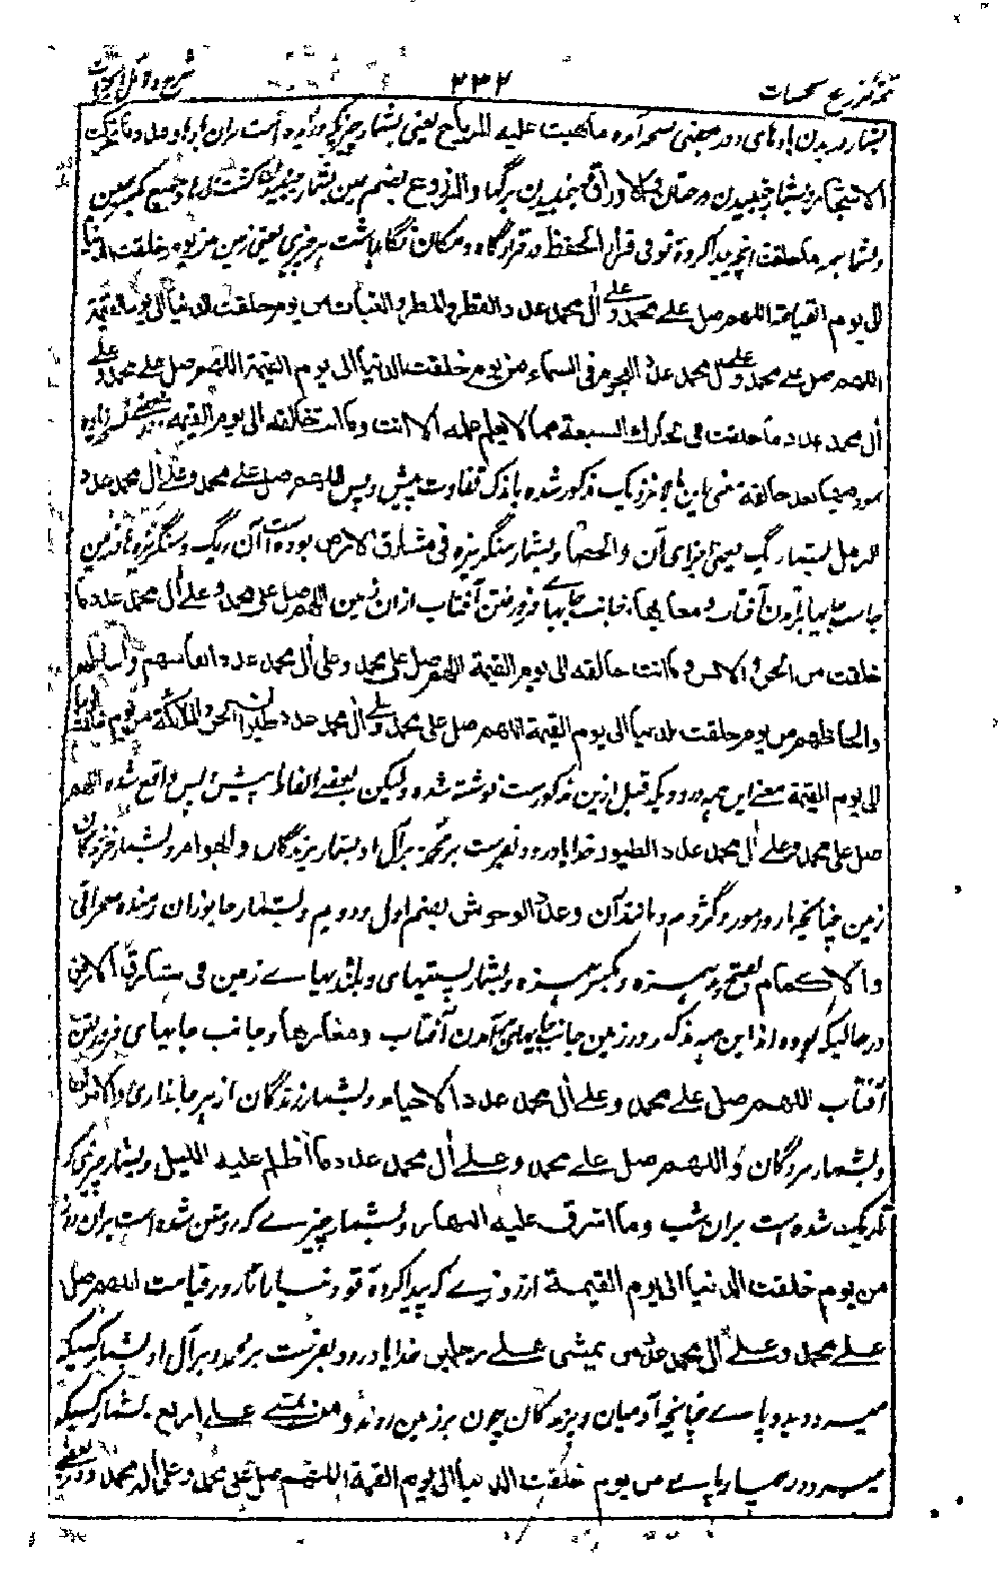 شرح دلائل الخیرات
۲۳۲
بشمار وزیدن بادهای و در بعضی نسخه آمده ما هبت علیه الریاح یعنی بشمار چیزیکه وزیده است بران باد
الاشجار و بشمار جنبیدن درختان و الاوراق جنبیدن برگها و الزروع بضم
و بشمار ما خلقت انچه پیدا کرده توئی فی قرار الحفظ در قرارگاه و مکان نگاهداشت هر چیزی یعنی زمین من یوم خلقت الدنیا
الی یوم القیامة اللهم صل علے محمد و علے آل محمد عدد القطر و المطر و النبات من یوم خلقت الدنیا الی یوم القیمة
اللهم صل علے محمد و علے آل محمد عدد النجوم فی السماء من یوم خلقت الدنیا الی یوم القیمة اللهم صل علے محمد و علے
آل محمد عدد ما خلقت فی بحارک السبعة مما لا یعلم علمه الا انت و ما انت خالقه الی یوم القیمة
معنی این بالا نزدیک مذکور شده باندک تفاوت پیش و پس اللهم صل علے محمد و علے آل محمد عدد
الرمل بشمار ریگ یعنی اجزای آن و الحصا و بشمار سنگریزه فی مشارق الارض بوده است آن ریگ و سنگریزه در زمین
جانب جایها برآمدن آفتاب و مغاربها و جانب جایهاے فرو رفتن آفتاب ازان زمین اللهم صل علی محمد و علے آل محمد عدد ما
خلقت من الجن و الانس و ما انت خالقه الی یوم القیمة اللهم صل علی محمد و علی آل محمد عدد انفاسهم و الفاظهم
و الحاظهم من یوم خلقت الدنیا الی یوم القیمة اللهم صل علی محمد و علے آل محمد عدد طیران الجن و الملائکة من یوم خلقت الدنیا
الی یوم القیمة معنے این همه درود یکه قبل ازین مذکورست نوشته شده و لیکن بعضے الفاظ پیش و پس واقع شده اللهم
صل علی محمد و علے آل محمد عدد الطیور خدایا درود بفرست بر محمد و بر آل او بشمار پرندگان و الهوام و بشمار خزندگان
زمین چنانچه مار و مور و گژدم و مانند آن و عدد الوحوش بضم اول و دویم و بشمار جانوران رمنده صحرائی
و الاکمام بفتح همزه و بکسر همزه و بشمار پستیهای و بلندیهاے زمین فی مشارق الارض
در حالیکه بوده اند این همه مذکور در زمین جانب جایهای برآمدن آفتاب و مغاربها و جانب جایهای فرو رفتن
آفتاب اللهم صل علے محمد و علے آل محمد عدد الاحیاء و بشمار زندگان از هر جانداری و الاموات
و بشمار مردگان و اللهم صل علے محمد و علے آل محمد عدد ما اظلم علیه اللیل و بشمار چیزی که
تاریک شده است بران شب و ما اشرق علیه النهار و بشمار چیزے که روشن شده است بران روز
من یوم خلقت الدنیا الی یوم القیمة از روزے که پیدا کردهٔ تو دنیا را تا روز قیامت اللهم صل
علے محمد و علے آل محمد عدد من یمشی علے رجلین خدایا درود بفرست بر محمد و بر آل او بشمار کسیکه
میرود بدو پاے چنانچه آدمیان و پرندگان چون بر زمین روند و من یمشے علے اربع بشمار کسیکه
میرود بر چهار پاے من یوم خلقت الدنیا الی یوم القیمة اللهم صل علی محمد و علی آل محمد